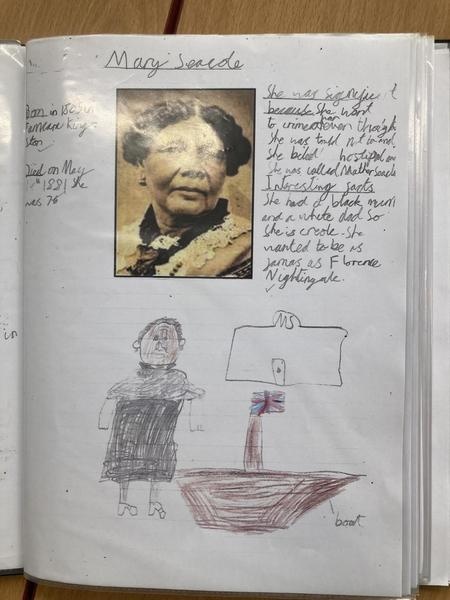 Mary Seacole
Born in 1805 in
Jamaica King-
ston
Died on May
1881 She
was 76
She was significant
because She want
to crimea even though
She was told not to and
She bulid hostipal and
She was called Mother Seacole
Interesting facts
She had a black mum
and a white dad so
She is creole. She
wanted to be as
famas as Florence
Nightingale.
MS
boat
in